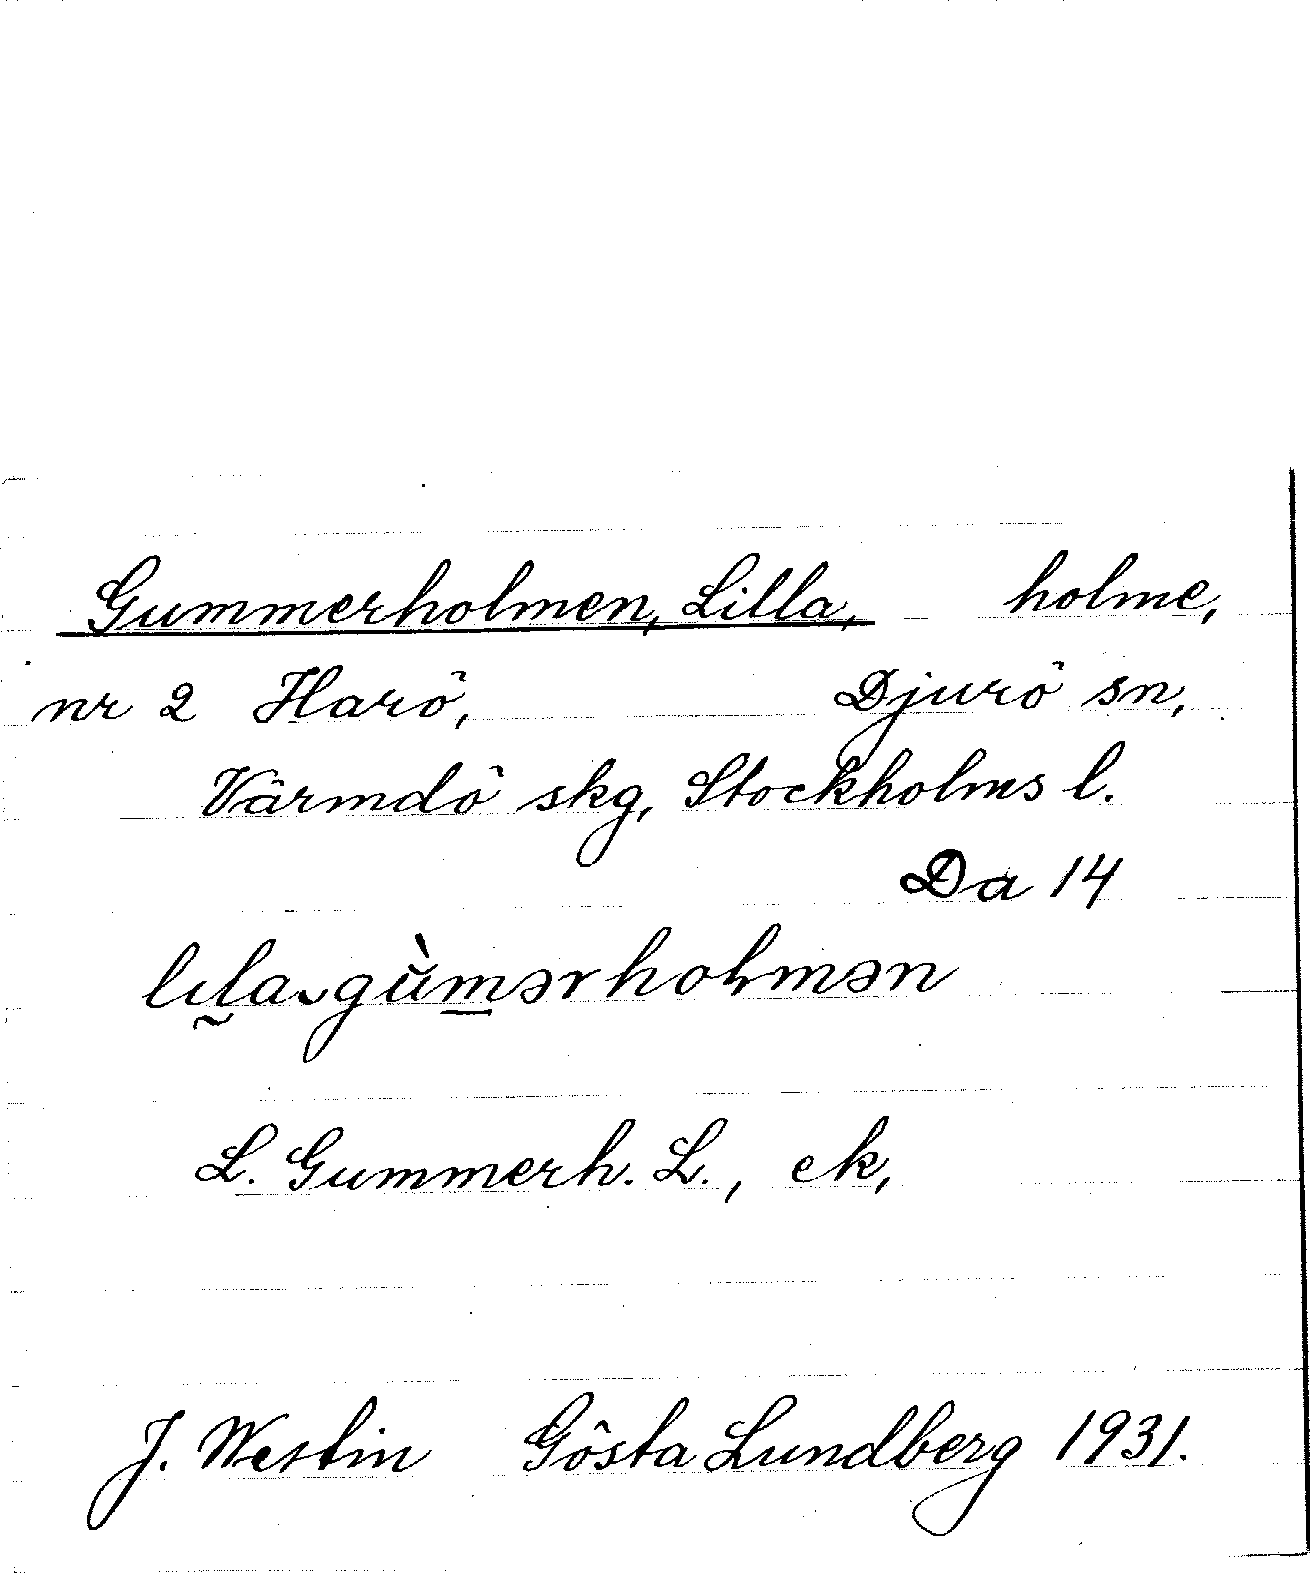 Gummerholmen, Lilla, holme,
nr 2 Harö, Djurö sn,
Värmdö skg, Stockholms l.
Da 14
lɩla gùmərholmən
L. Gummerh. L., ek,
J. Westin Gösta Lundberg 1931.